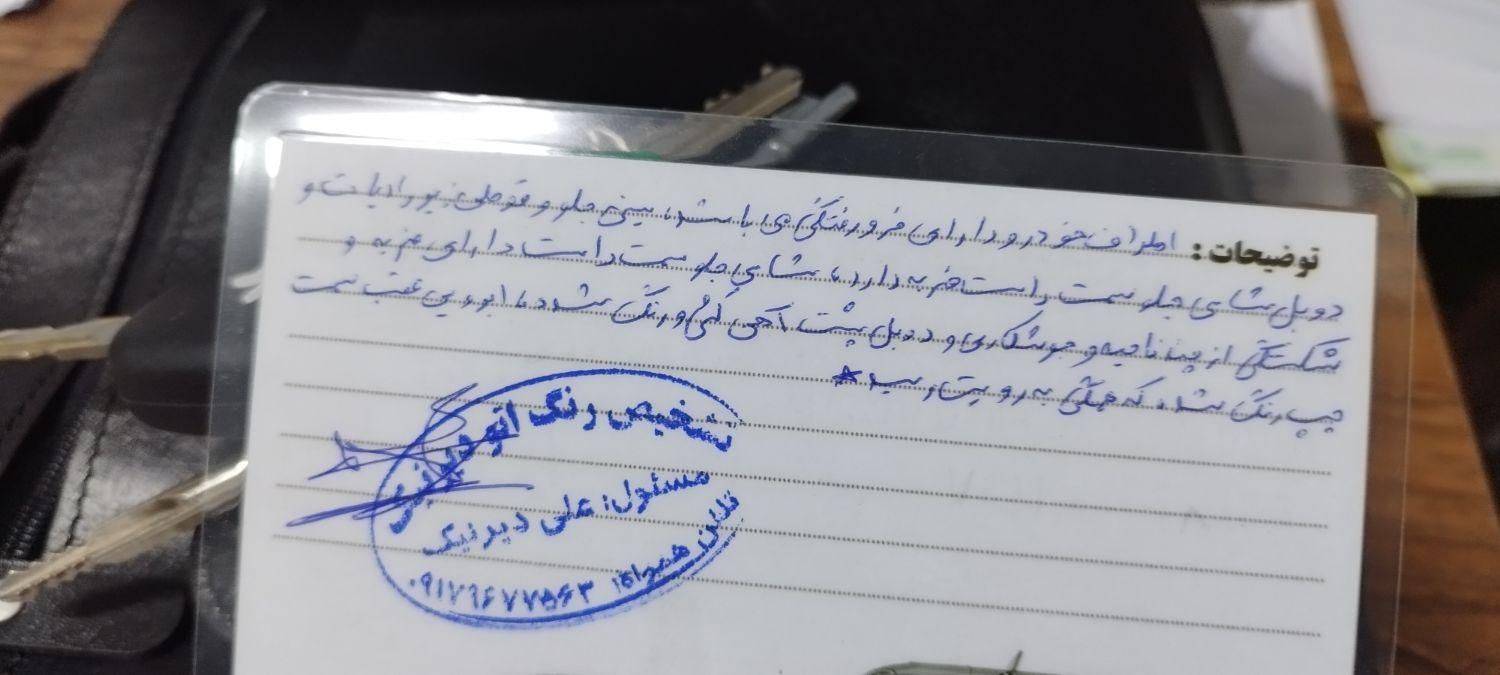 توضیحات : اطراف خودرو دارای فرورفتگی می باشد، سینی جلو و قوطی زیر رادیات و
دوبل شاسی جلو سمت راست ضربه دارد، شاسی جلو سمت راست دارای ضربه و
شکستگی از چند ناحیه و جوشکاری و دوبل پشت آچی کشی و رنگ شده، ابرویی عقب سمت
چپ رنگ شده که همگی به رویت رسید *
تشخیص رنگ اتو
مسئول: علی دیرنیک
تلفن همراه: ۰۹۱۷۹۶۷۷۵۶۳